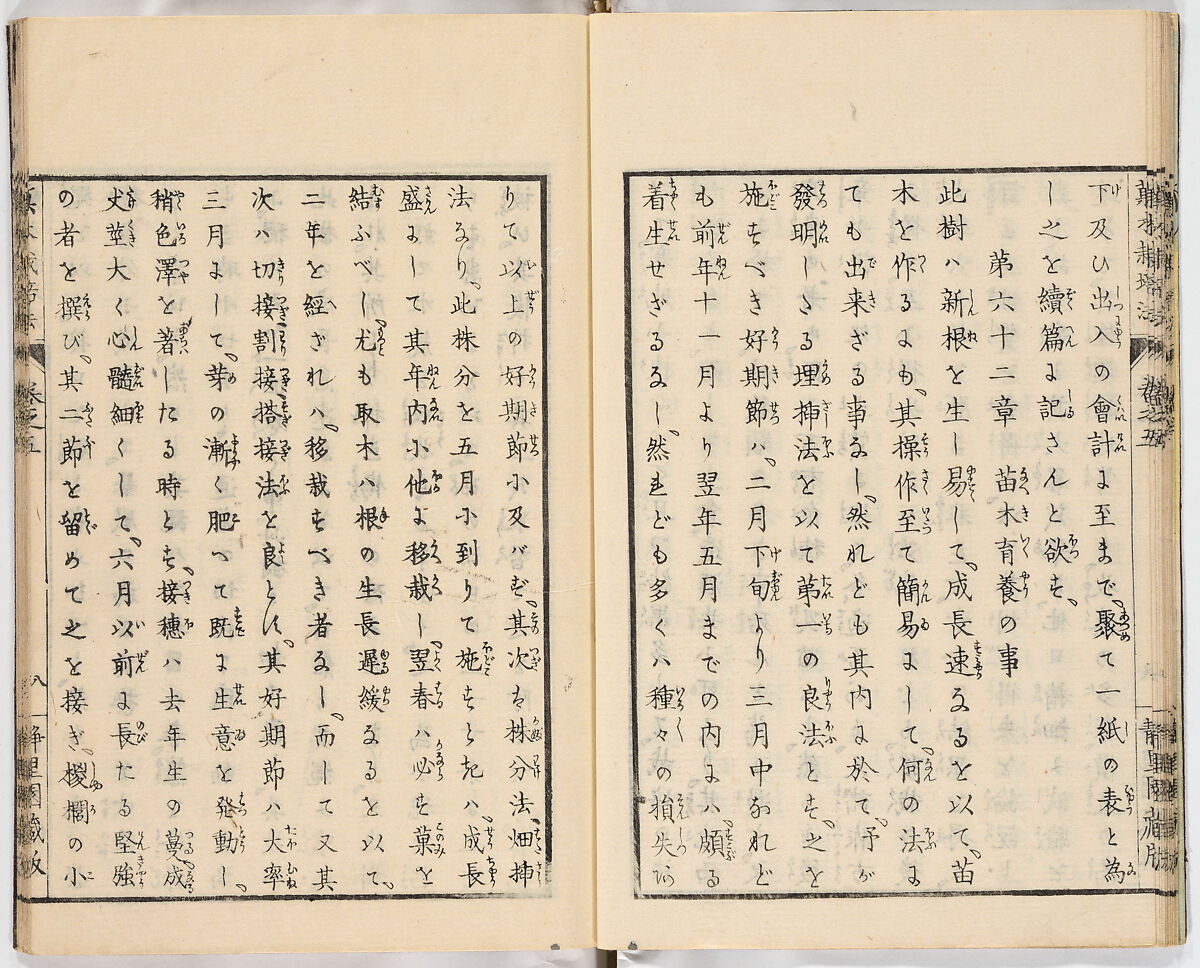 下及ひ出入の會計に至まで、聚て一紙の表と為
し之を續篇に記さんと欲す、
第六十二章 苗木育養の事
此樹ハ新根を生し易して、成長速なるを以て、苗
木を作るにも、其操作至て簡易にして、何の法に
ても出来ざる事なし、然れども其内に於て、予が
發明しさる埋挿法を以て第一の良法とす、之を
施すべき好期節ハ、二月下旬より三月中なれど
も前年十一月より翌年五月までの内にハ、頗る
着生せざるなし、然れども多くハ種々の損失あ
りて以上の好期節に及バず、其次を株分法、畑挿
法なり、此株分を五月に到りて施すときハ、成長
盛にして其年内に他に移栽し、翌春ハ必す菓を
結ふべし、尤も取木ハ根の生長遲緩なるを以て、
二年を經ざれハ、移栽すべき者なし、而して又其
次ハ切接割接搭接法を良とす、其好期節ハ大率
三月にして、芽の漸く肥へて既に生意を發動し、
稍色澤を著したる時とす、接穗ハ去年生の蔓成
丈莖大く心髓細くして、六月以前に長たる堅強
の者を撰び、其二節を留めて之を接ぎ、椶櫚の小
卷之五
八
静里園藏版